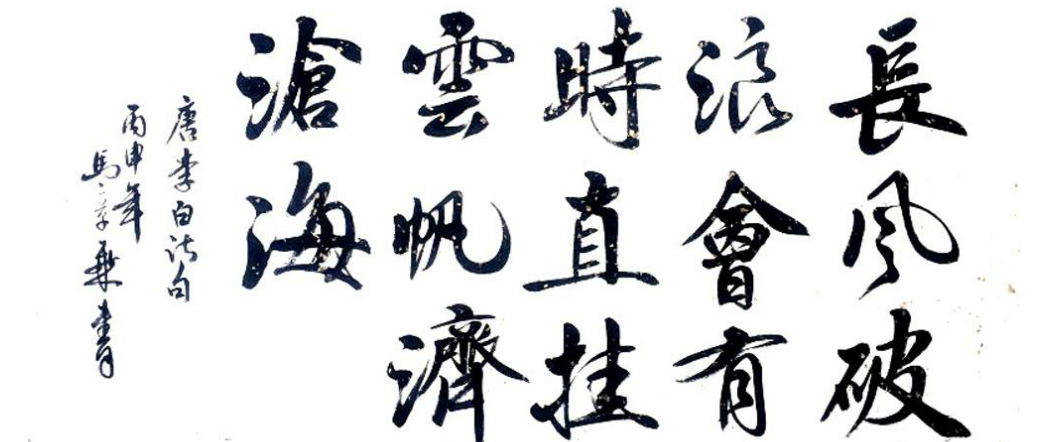 長風破
浪會有
時直挂
雲帆濟
滄海
唐李白詩句
丙申年
馬
書